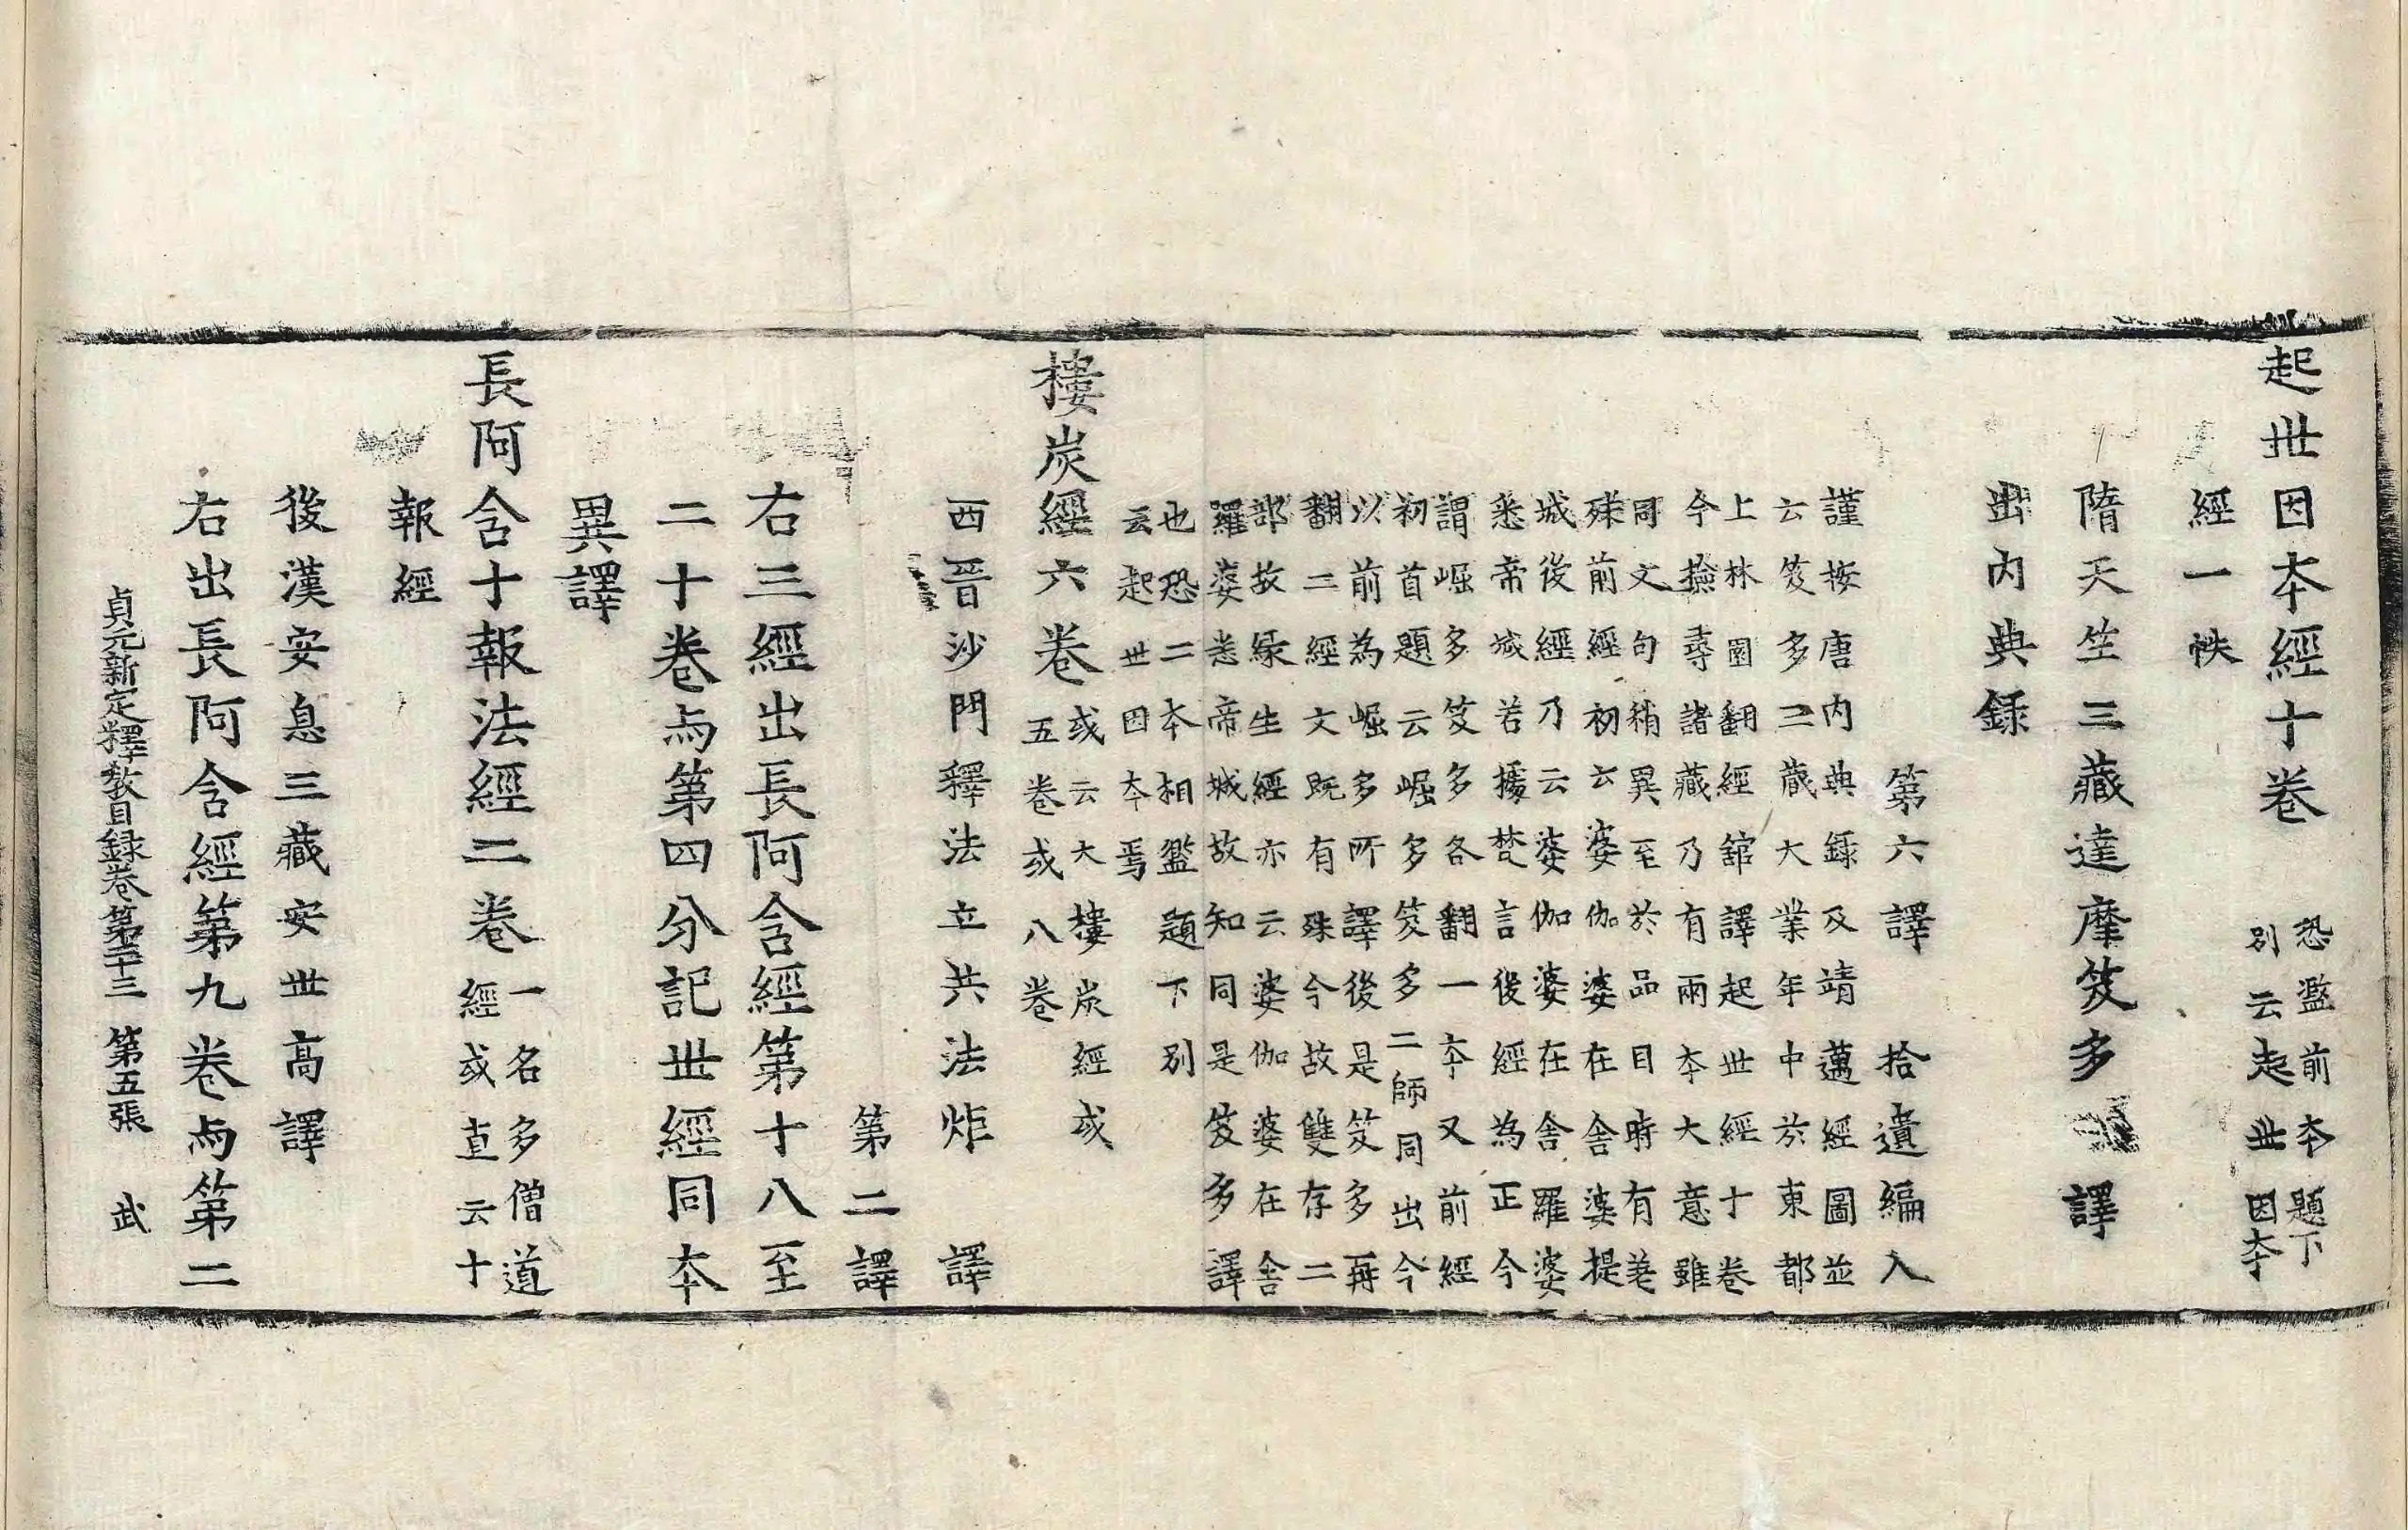 起世因夲經十卷
恐濫前夲題下
別云起世因夲
經一帙
隋天竺三藏達摩笈多譯
出内典録
第六譯 拾遺編入
謹按唐内典録及靖邁經圖並
云笈多三藏大業年中於東都
上林園翻經舘譯起世經十卷
今撿尋諸藏乃有兩夲大意雖
同文句稍異至於品目時有差
殊前經初云婆伽婆在舍婆提
城後經乃云婆伽婆在舍羅婆
悉帝城若據梵言後經為正今
謂崛多笈多各翻一夲又前經
初首題云崛多笈多二師同出今
以前為崛多所譯後是笈多再
翻二經文既有殊今故雙存二
部故緣生經亦云婆伽婆在舍
羅婆悉帝城故知同是笈多譯
也恐二夲相濫題下別
云起世因夲焉
樓炭經六卷
或云大樓炭經或
五卷或八卷
西晉沙門釋法立共法炬譯
第二譯
右三經出長阿含經第十八至
二十卷与第四分記世經同夲
異譯
長阿含十報法經二卷
一名多僧道
經或直云十
報經
後漢安息三藏安世高譯
右出長阿含經第九卷与第二
貞元新定釋教目録卷第三十三 第五張 武